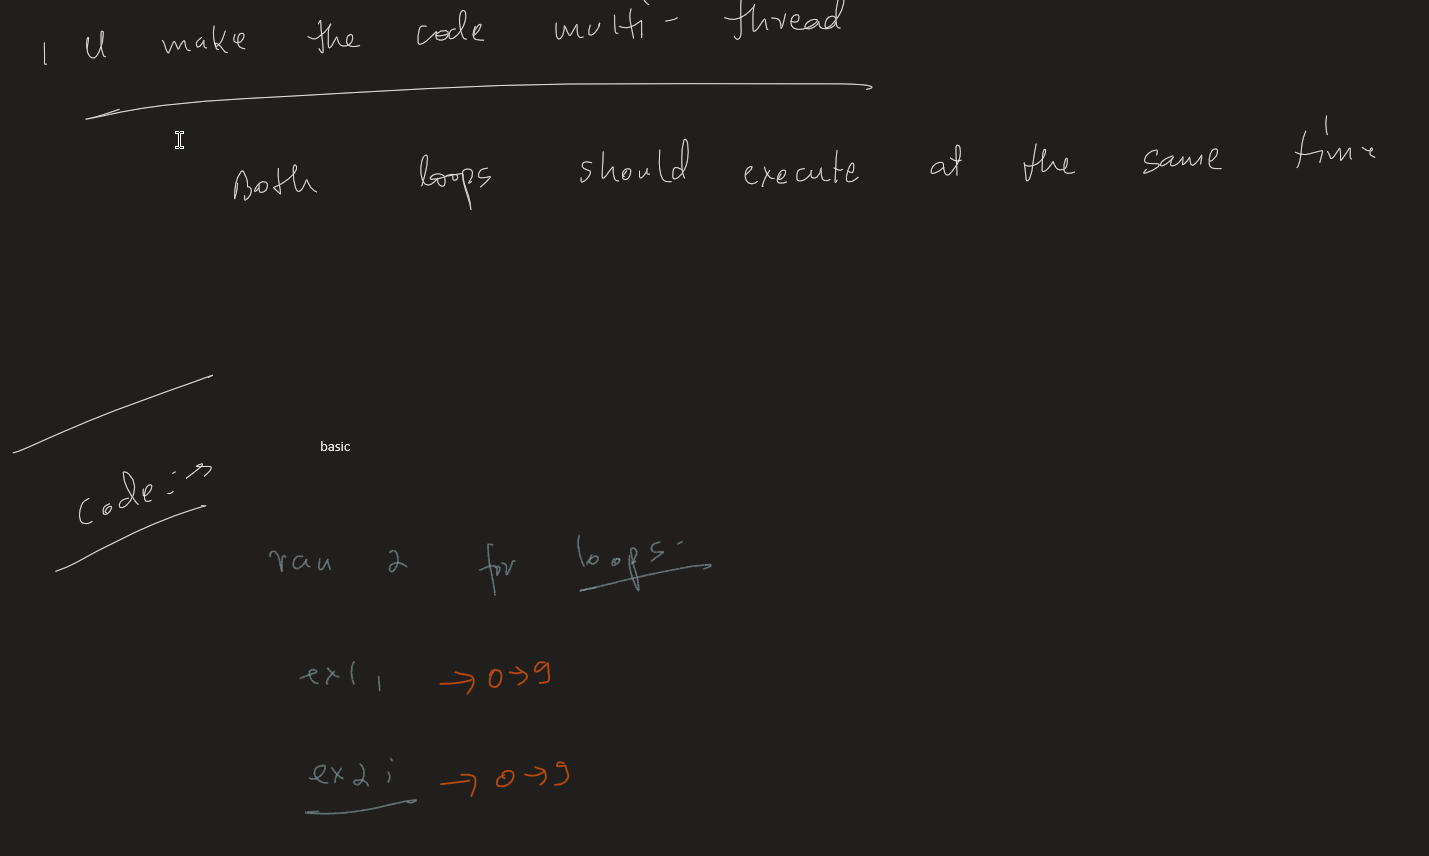 U make the code multi-thread
Both loops should execute at the same time
basic
Code:→
ran 2 for loops.
ex1, → 0→9
ex2 i → 0→9